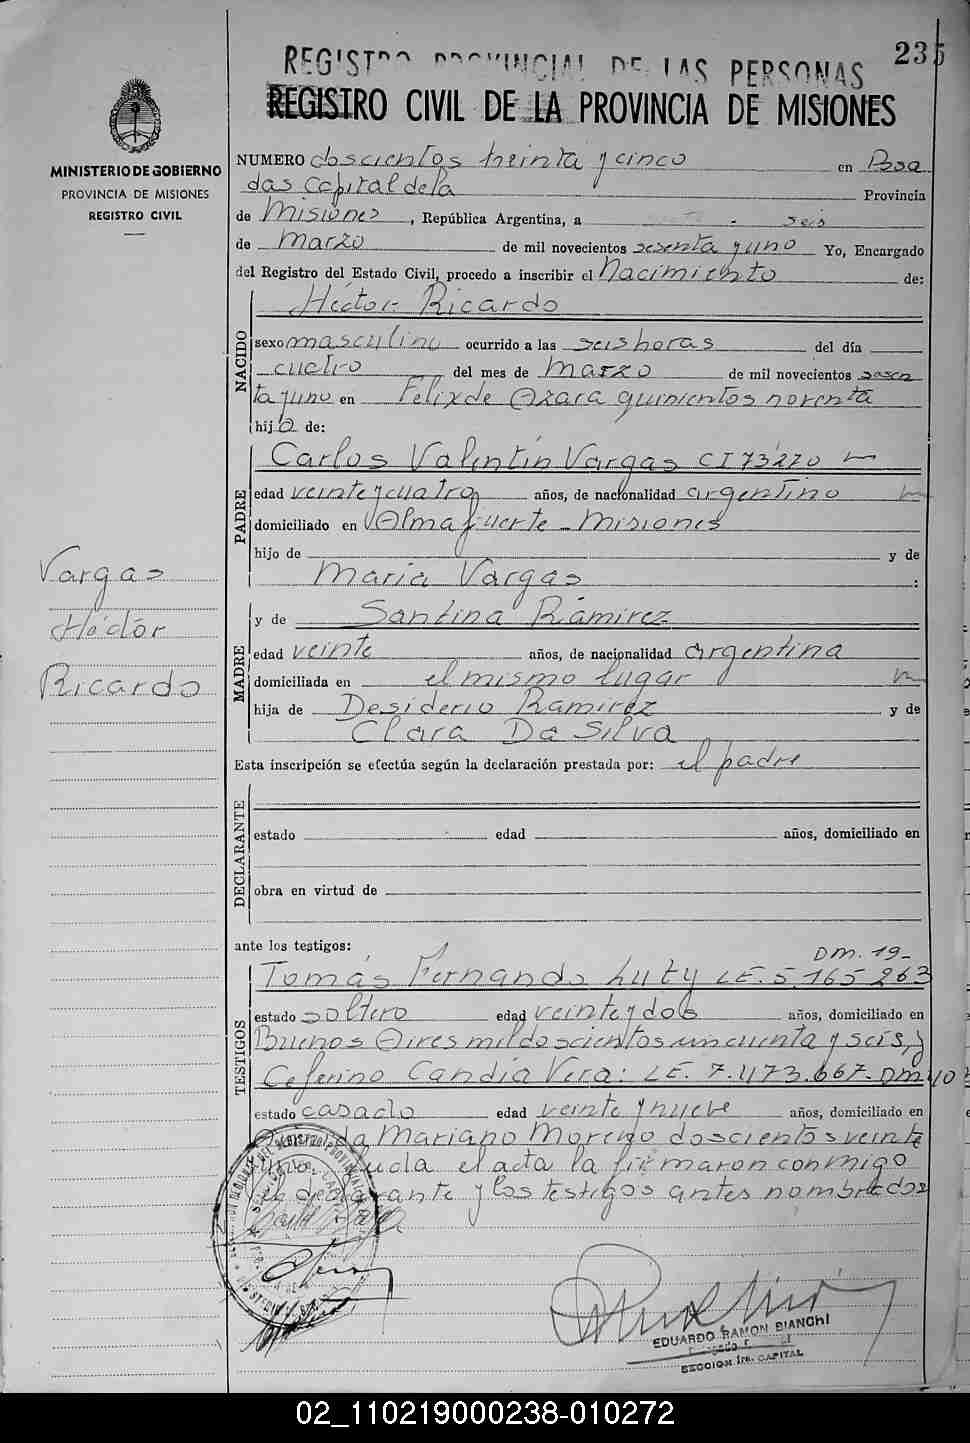 235
REGISTRO PROVINCIAL DE LAS PERSONAS
REGISTRO CIVIL DE LA PROVINCIA DE MISIONES
MINISTERIO DE GOBIERNO
PROVINCIA DE MISIONES
REGISTRO CIVIL
NUMERO doscientos treinta y cinco en Posa
das Capital de la Provincia
de Misiones, República Argentina, a seis
de Marzo de mil novecientos sesenta y uno Yo, Encargado
del Registro del Estado Civil, procedo a inscribir el Nacimiento de:
NACIDO
Héctor Ricardo
sexo masculino ocurrido a las seis horas del día
cuatro del mes de Marzo de mil novecientos sesen
ta y uno en Felix de Azara quinientos noventa
hijo de:
PADRE
Carlos Valentín Vargas CI 73270
edad veinte y cuatro años, de nacionalidad argentino
domiciliado en Almafuerte - Misiones
hijo de y de
Maria Vargas :
MADRE
y de Santina Ramirez
edad veinte años, de nacionalidad argentina
domiciliada en el mismo lugar
hija de Desiderio Ramirez y de
Clara Da Silva
Vargas
Héctor
Ricardo
Esta inscripción se efectúa según la declaración prestada por: el padre
DECLARANTE
estado edad años, domiciliado en
obra en virtud de
ante los testigos:
DM. 19-
TESTIGOS
Tomás Fernando Luty LE. 5.165 263
estado soltero edad veinte y dos años, domiciliado en
Buenos Aires mil doscientos cincuenta y seis, y
Ceferino Candia Vera: LE. 7.473.667. DM 40
estado casado edad veinte y nueve años, domiciliado en
Mariano Moreno doscientos veinte
el acta la firmaron conmigo
declarante y los testigos antes nombrados
EDUARDO RAMON BIANCHI
SECCION 1ra. CAPITAL
02_110219000238-010272